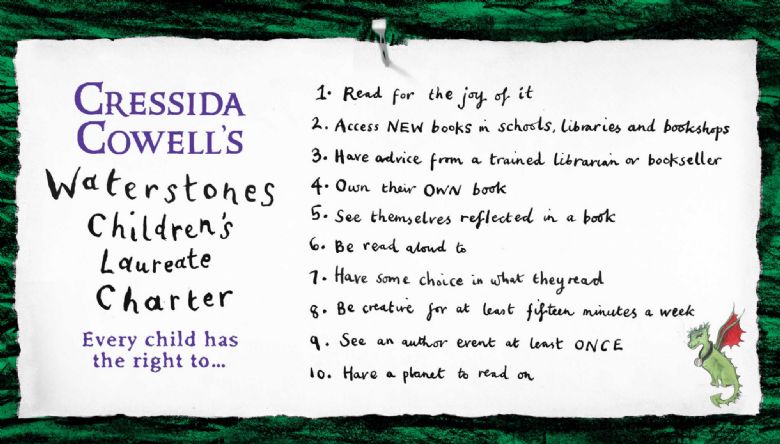 CRESSIDA
COWELL'S
Waterstones
Children's
Laureate
Charter
Every child has
the right to...
1. Read for the joy of it
2. Access NEW books in schools, libraries and bookshops
3. Have advice from a trained librarian or bookseller
4. Own their OWN book
5. See themselves reflected in a book
6. Be read aloud to
7. Have some choice in what they read
8. Be creative for at least fifteen minutes a week
9. See an author event at least ONCE
10. Have a planet to read on